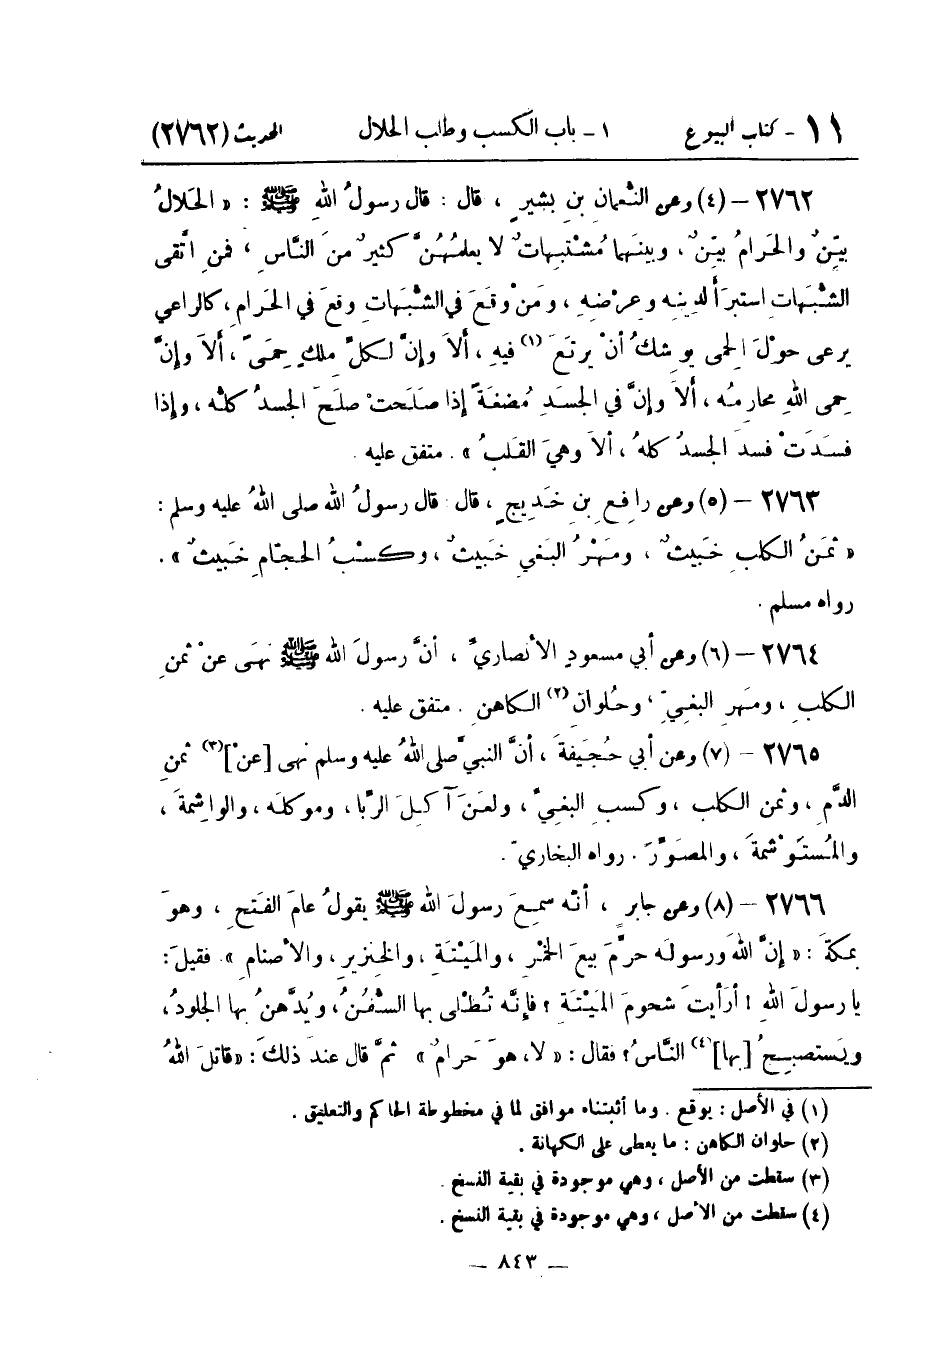 ١١ - كتاب البيوع ١ - باب الكسب وطلب الحلال الحديث (٢٧٦٢)
٢٧٦٢ - (٤) وعن النُّعمانِ بنِ بشيرٍ ، قال : قال رسولُ اللهِ ﷺ : « الحَلالُ
بيِّنٌ والحَرامُ بيِّنٌ ، وبينَهما مُشْتبِهاتٌ لا يعلمُهُنَّ كثيرٌ منَ النَّاسِ ، فمنِ اتَّقى
الشُّبَهَاتِ استبرَأ لدِينِه وعِرْضِه ، ومَنْ وقَعَ في الشُّبَهاتِ وقعَ في الحَرامِ ، كالراعي
يرعى حوْلَ الحِمى يوشكُ أنْ يرتَعَ (١) فيهِ ، ألاَ وإنَّ لكلِّ ملكٍ حِمَىً ، ألاَ وإنَّ
حِمى اللهِ محارِمُه ، ألاَ وإنَّ في الجسَدِ مُضغَةً إذا صلَحَتْ صلَحَ الجسدُ كلُّه ، وإذا
فسَدَتْ فسدَ الجسدُ كلهُ ، ألاَ وهيَ القَلبُ » . متفق عليه .
٢٧٦٣ - (٥) وعن رافِعِ بنِ خَديجٍ ، قال : قال رسولُ الله صلى اللهُ عليه وسلم :
« ثمَنُ الكلبِ خَبيثٌ ، ومَهْرُ البَغي خَبيثٌ ، وكسْبُ الحجّامِ خَبيثٌ » .
رواه مسلم .
٢٧٦٤ - (٦) وعن أبي مسعودٍ الأنصاريِّ ، أنَّ رسولَ الله ﷺ نهَى عنْ ثمنِ
الكلبِ ، ومَهرِ البغيِّ ، وحُلوان (٢) الكاهنِ . متفق عليه .
٢٧٦٥ - (٧) وعن أبي حُجَيفةَ ، أنَّ النبيَّ صلى اللهُ عليه وسلم نهى [عنْ] (٣) ثمنِ
الدَّمِ ، وثمنِ الكلبِ ، وكسبِ البغيِّ ، ولعَنَ آكِلَ الرِّبا ، وموكِلَه ، والواشِمةَ ،
والمُستَوْشمةَ ، والمصَوِّرَ . رواه البخاريّ .
٢٧٦٦ - (٨) وعن جابرٍ ، أنّه سمِعَ رسولَ الله ﷺ يقولُ عامَ الفَتحِ ، وهوَ
بمكةَ : « إنَّ اللهَ ورسولَه حرَّمَ بيعَ الخمْرِ ، والمَيْتةِ ، والخِنزيرِ ، والأصنامِ » . فقيلَ :
يا رسولَ اللهِ ! أرأيتَ شحومَ المَيْتَةِ ؟ فإنَّه تُطْلى بها السُّفُنُ ، ويُدَّهنُ بها الجلودُ ،
ويَستصبِحُ [بها] (٤) النَّاسُ ؟ فقال : « لا ، هوَ حَرامٌ » ثمَّ قال عندَ ذلكَ : « قاتلَ اللهُ
(١) في الأصل : يوقع . وما أثبتناه موافق لما في مخطوطة الحاكم والتعليق .
(٢) حلوان الكاهن : ما يعطى على الكهانة .
(٣) سقطت من الأصل ، وهي موجودة في بقية النسخ .
(٤) سقطت من الأصل ، وهي موجودة في بقية النسخ .
- ٨٤٣ -